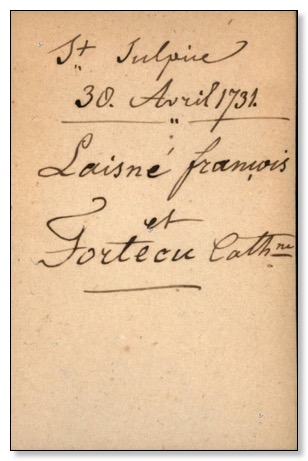 St Sulpice
30. Avril 1731.
Laisné françois
et
Fortecu Cathne